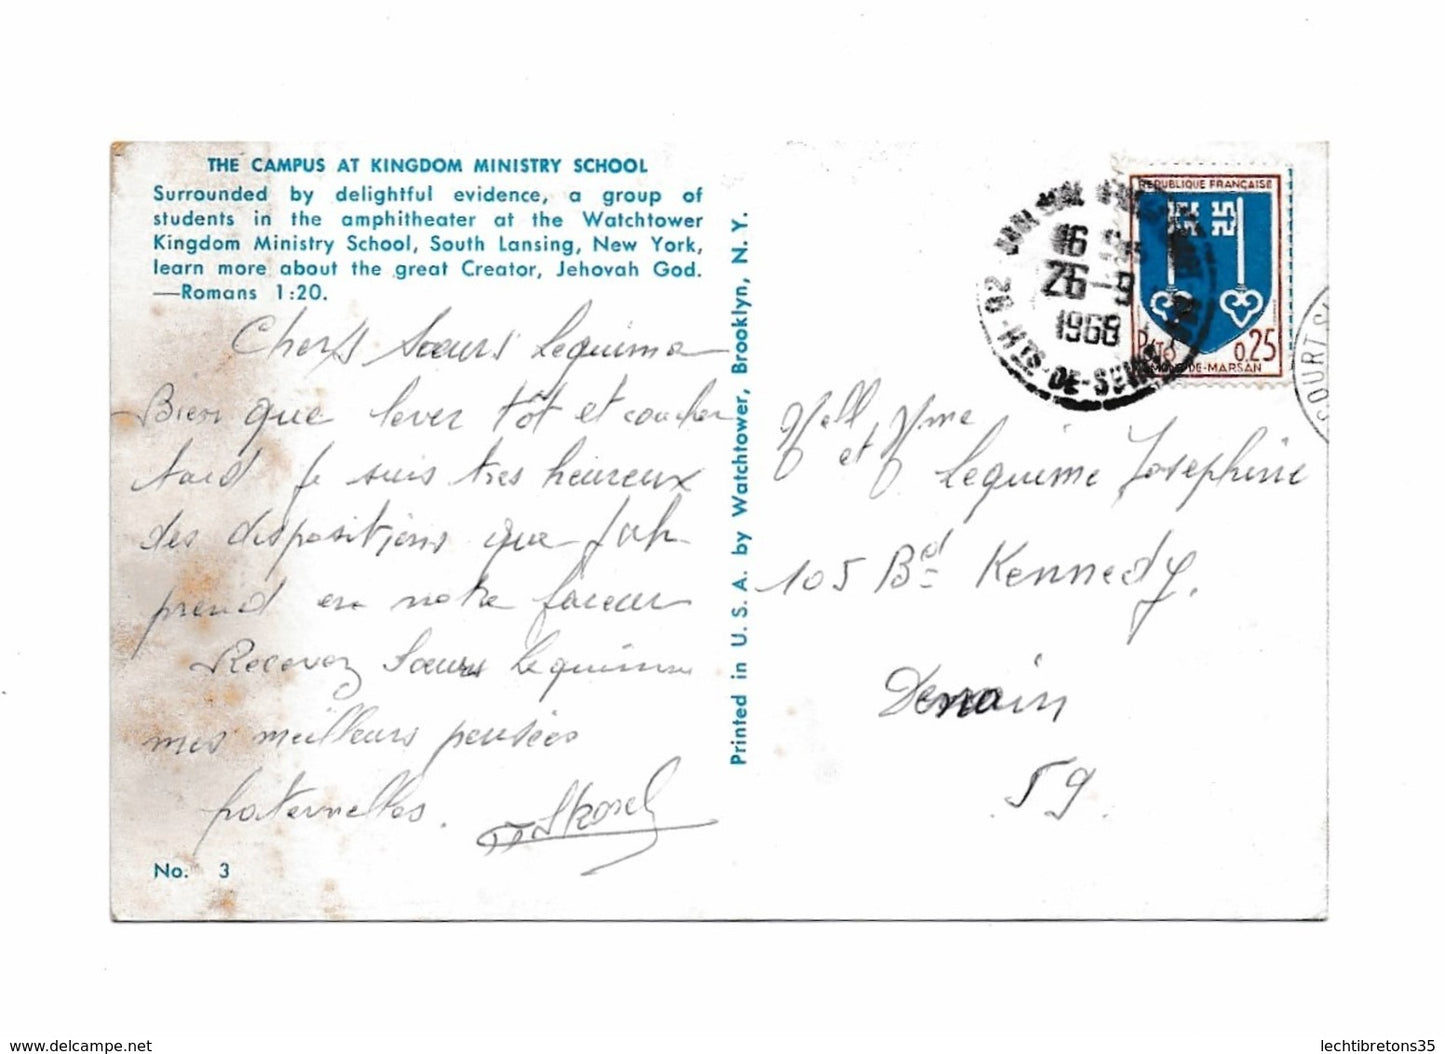 THE CAMPUS AT KINGDOM MINISTRY SCHOOL
Surrounded by delightful evidence, a group of
students in the amphitheater at the Watchtower
Kingdom Ministry School, South Lansing, New York,
learn more about the great Creator, Jehovah God.
—Romans 1:20.
Chers Sœurs Lequime
Bien que lever tôt et coucher
tard je suis tres heureux
des dispositions que Jah
prend en notre faveur
Recevez Sœurs Lequime
mes meilleurs pensées
fraternelles.
No. 3
Printed in U. S. A. by Watchtower, Brooklyn, N. Y.
16
26-9
1968
92
HTS-DE-SEINE
REPUBLIQUE FRANÇAISE
Postes
0,25
MONT-DE-MARSAN
COURTS
Mell
et Mme
Lequime Josephine
105 Bd Kennedy.
Denain
59.
www.delcampe.net
lechtibretons35